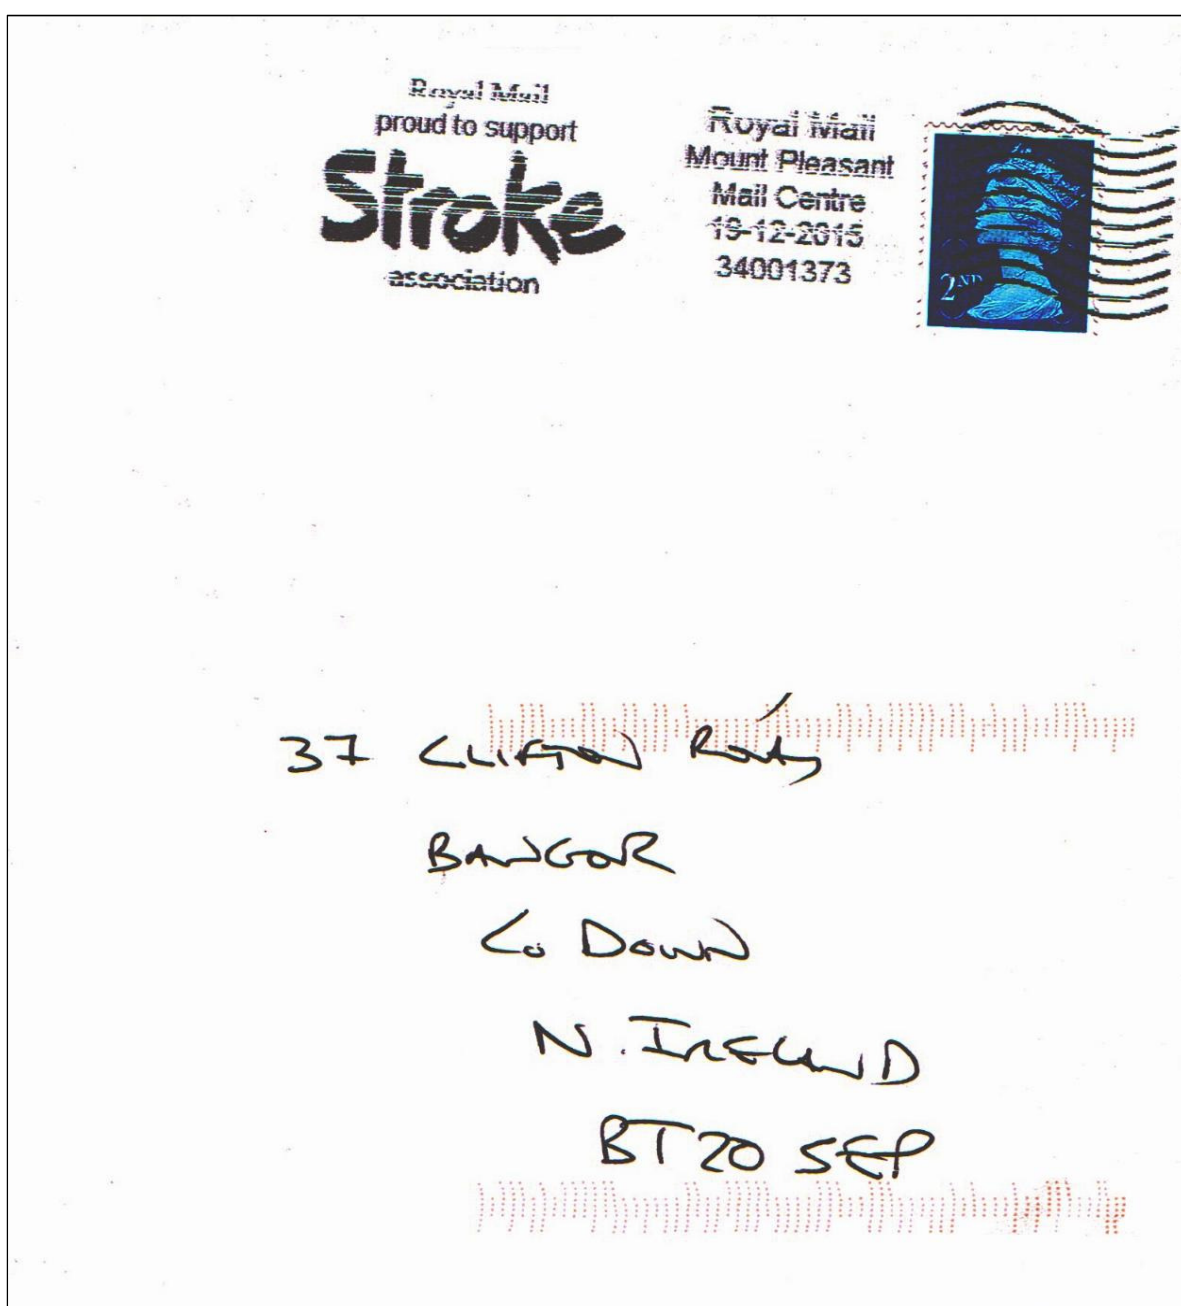 Royal Mail
proud to support
Stroke
association
Royal Mail
Mount Pleasant
Mail Centre
19-12-2015
34001373
2ND
37 CLIFTON ROAD
BANGOR
Co DOWN
N. IRELAND
BT20 5EP